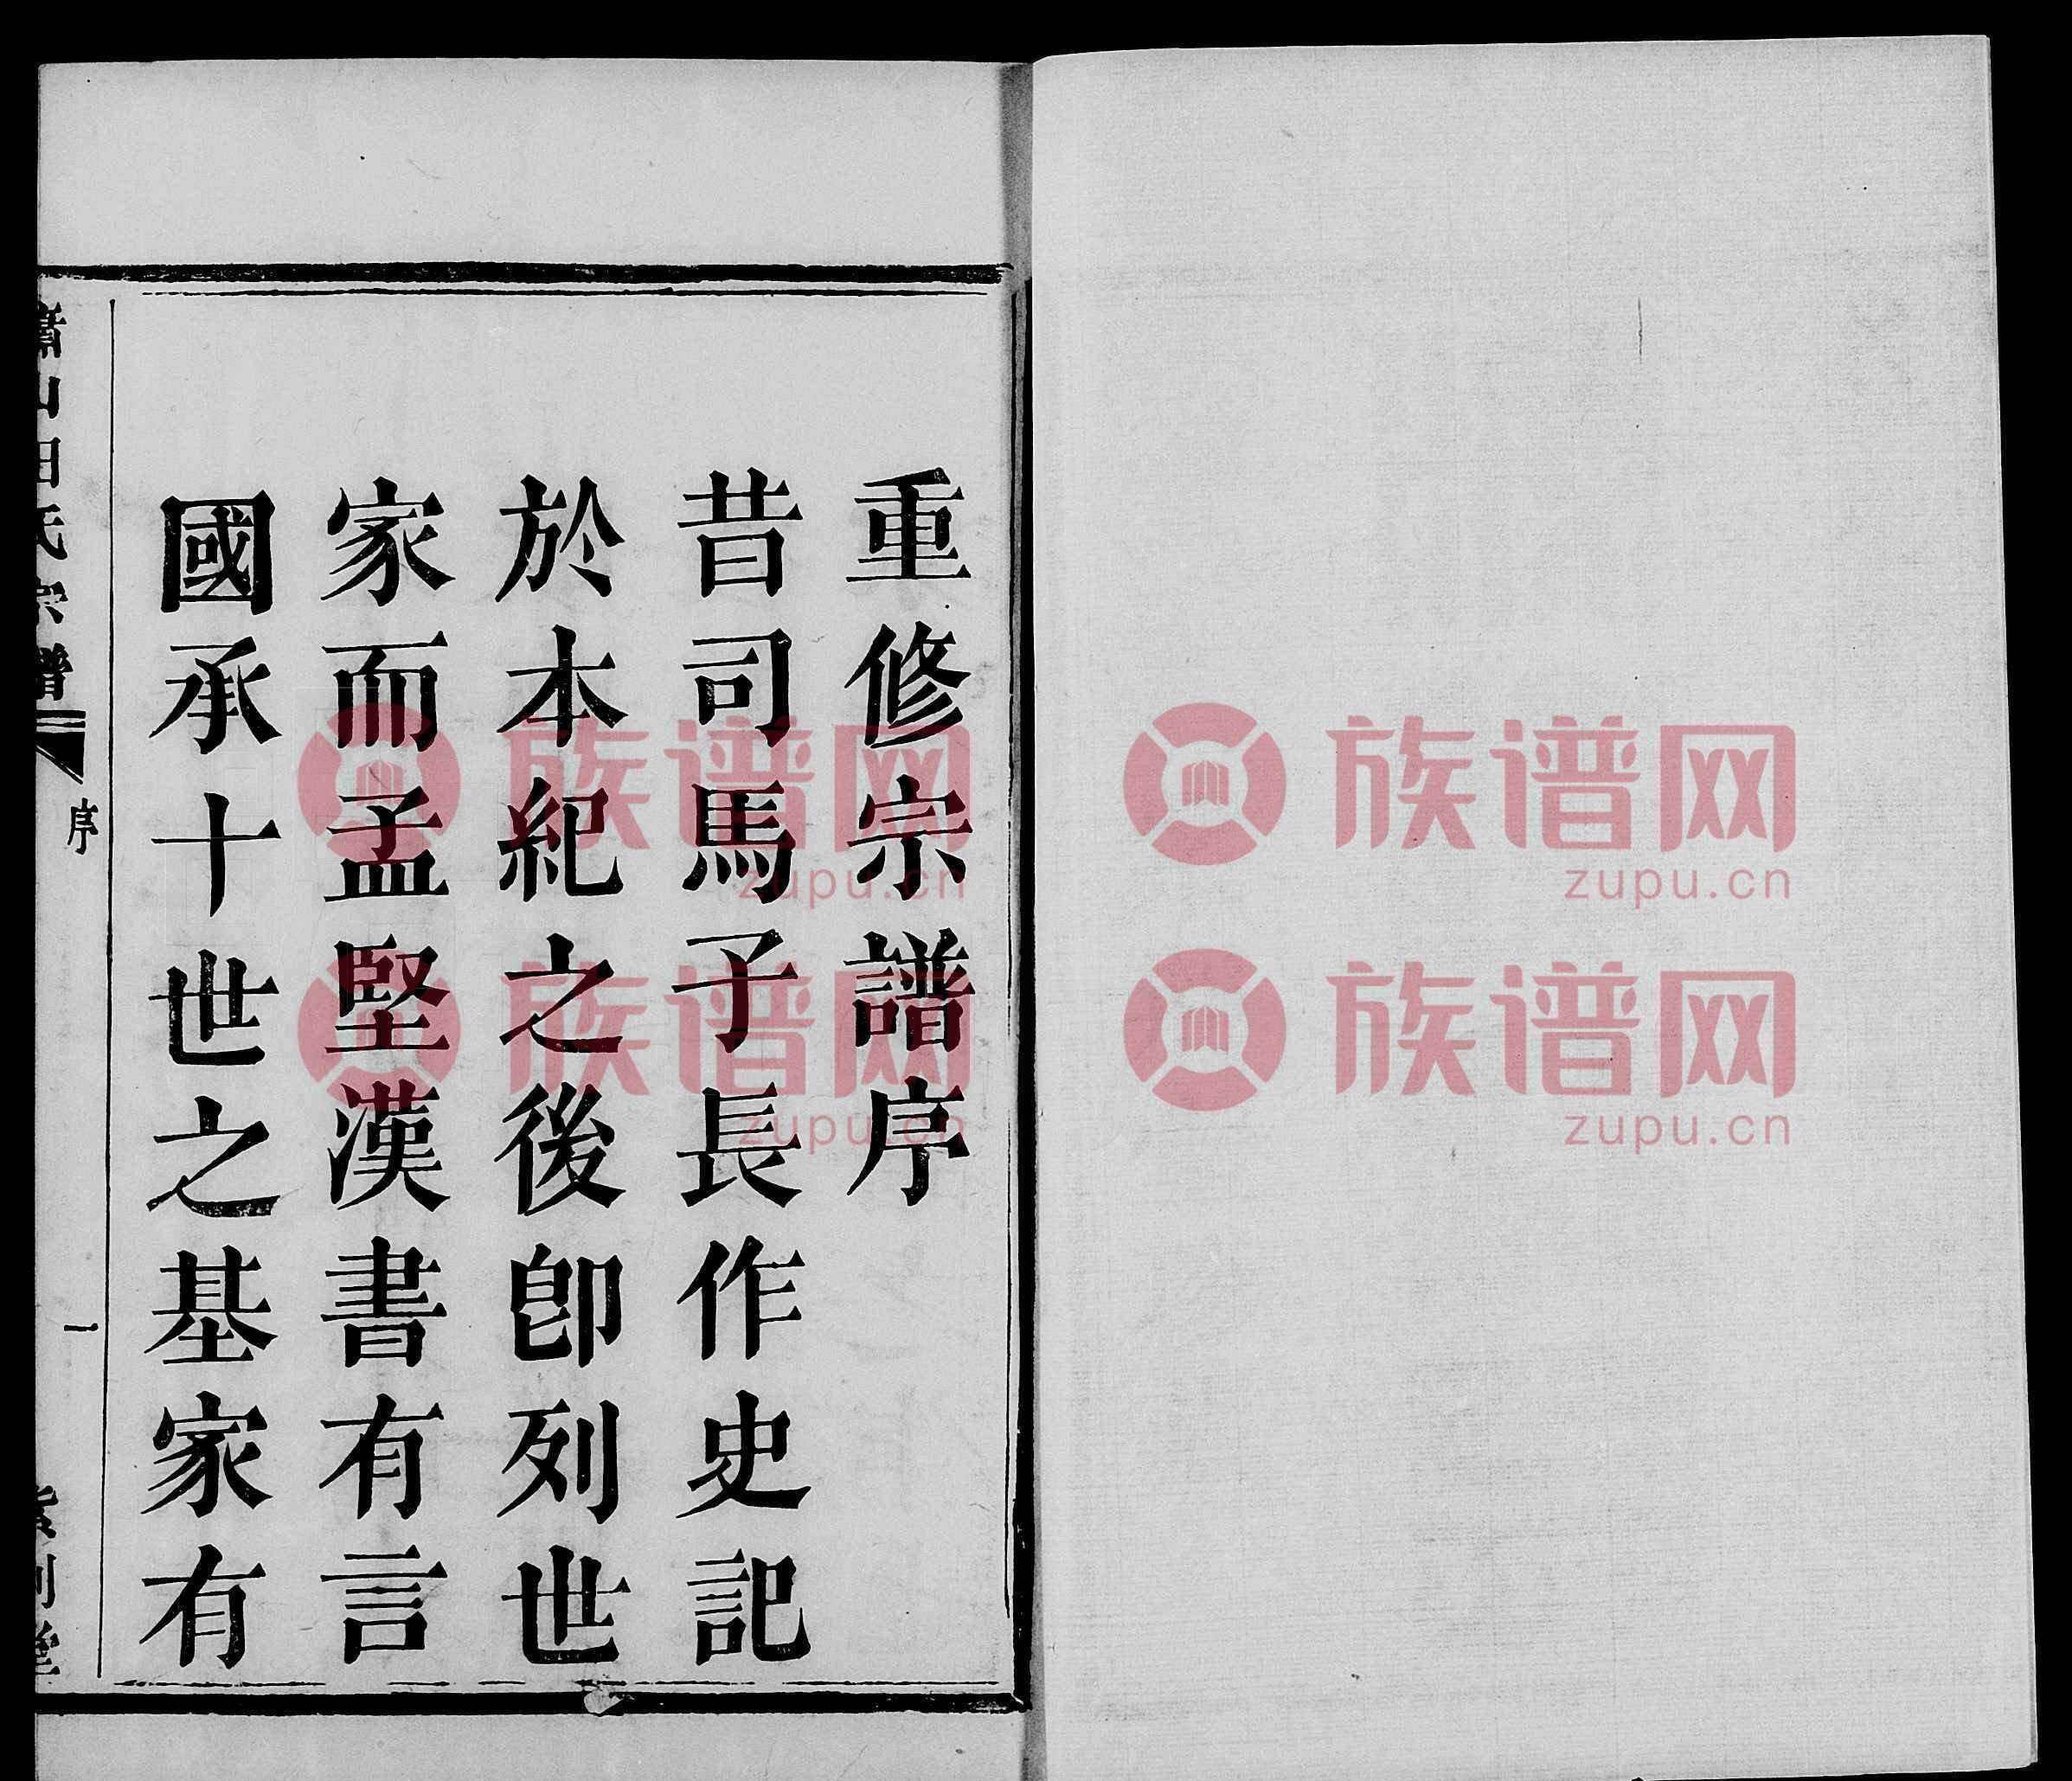 重修宗譜序
昔司馬子長作史記
於本紀之後卽列世
家而孟堅漢書有言
國承十世之基家有
蕭山田氏宗譜
序
一
紫荆堂
族谱网
zupu.cn
族谱网
zupu.cn
族谱网
zupu.cn
族谱网
zupu.cn